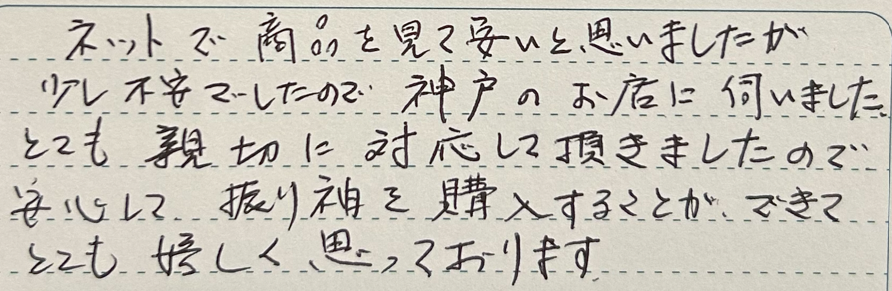 ネットで商品を見て安いと思いましたが
少し不安でしたので神戸のお店に伺いました。
とても親切に対応して頂きましたので
安心して振り袖を購入することができて
とても嬉しく思っております